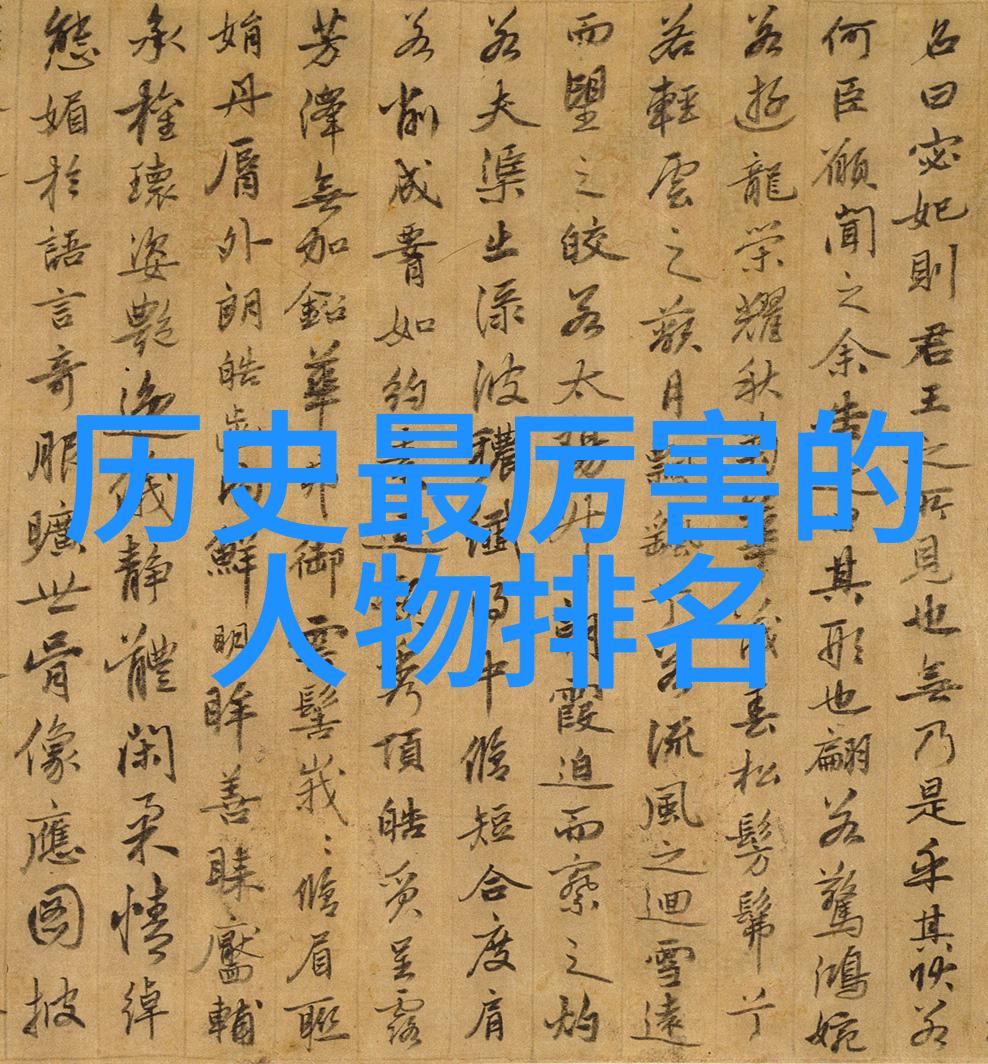 名曰宓妃則君王之所見也無乃是乎其狀若
何臣願聞之余告之曰其形也翩若驚鴻婉
若遊龍榮耀秋菊華茂春松髣髴兮
若輕雲之蔽月飄飄兮若流風之迴雪遠
而望之皎若太陽升朝霞迫而察之灼
若夫渠出淥波穠纖得中脩短合度肩
若削成腰如約素延頸秀項皓質呈露
芳澤無加鉛華弗御雲髻峩〻脩眉聯
娟丹脣外朗皓齒內鮮明眸善睞靨輔
承權瓌姿艷逸儀靜體閑柔情綽
態媚於語言奇服曠世骨像應圖披
历史最厉害的
人物排名